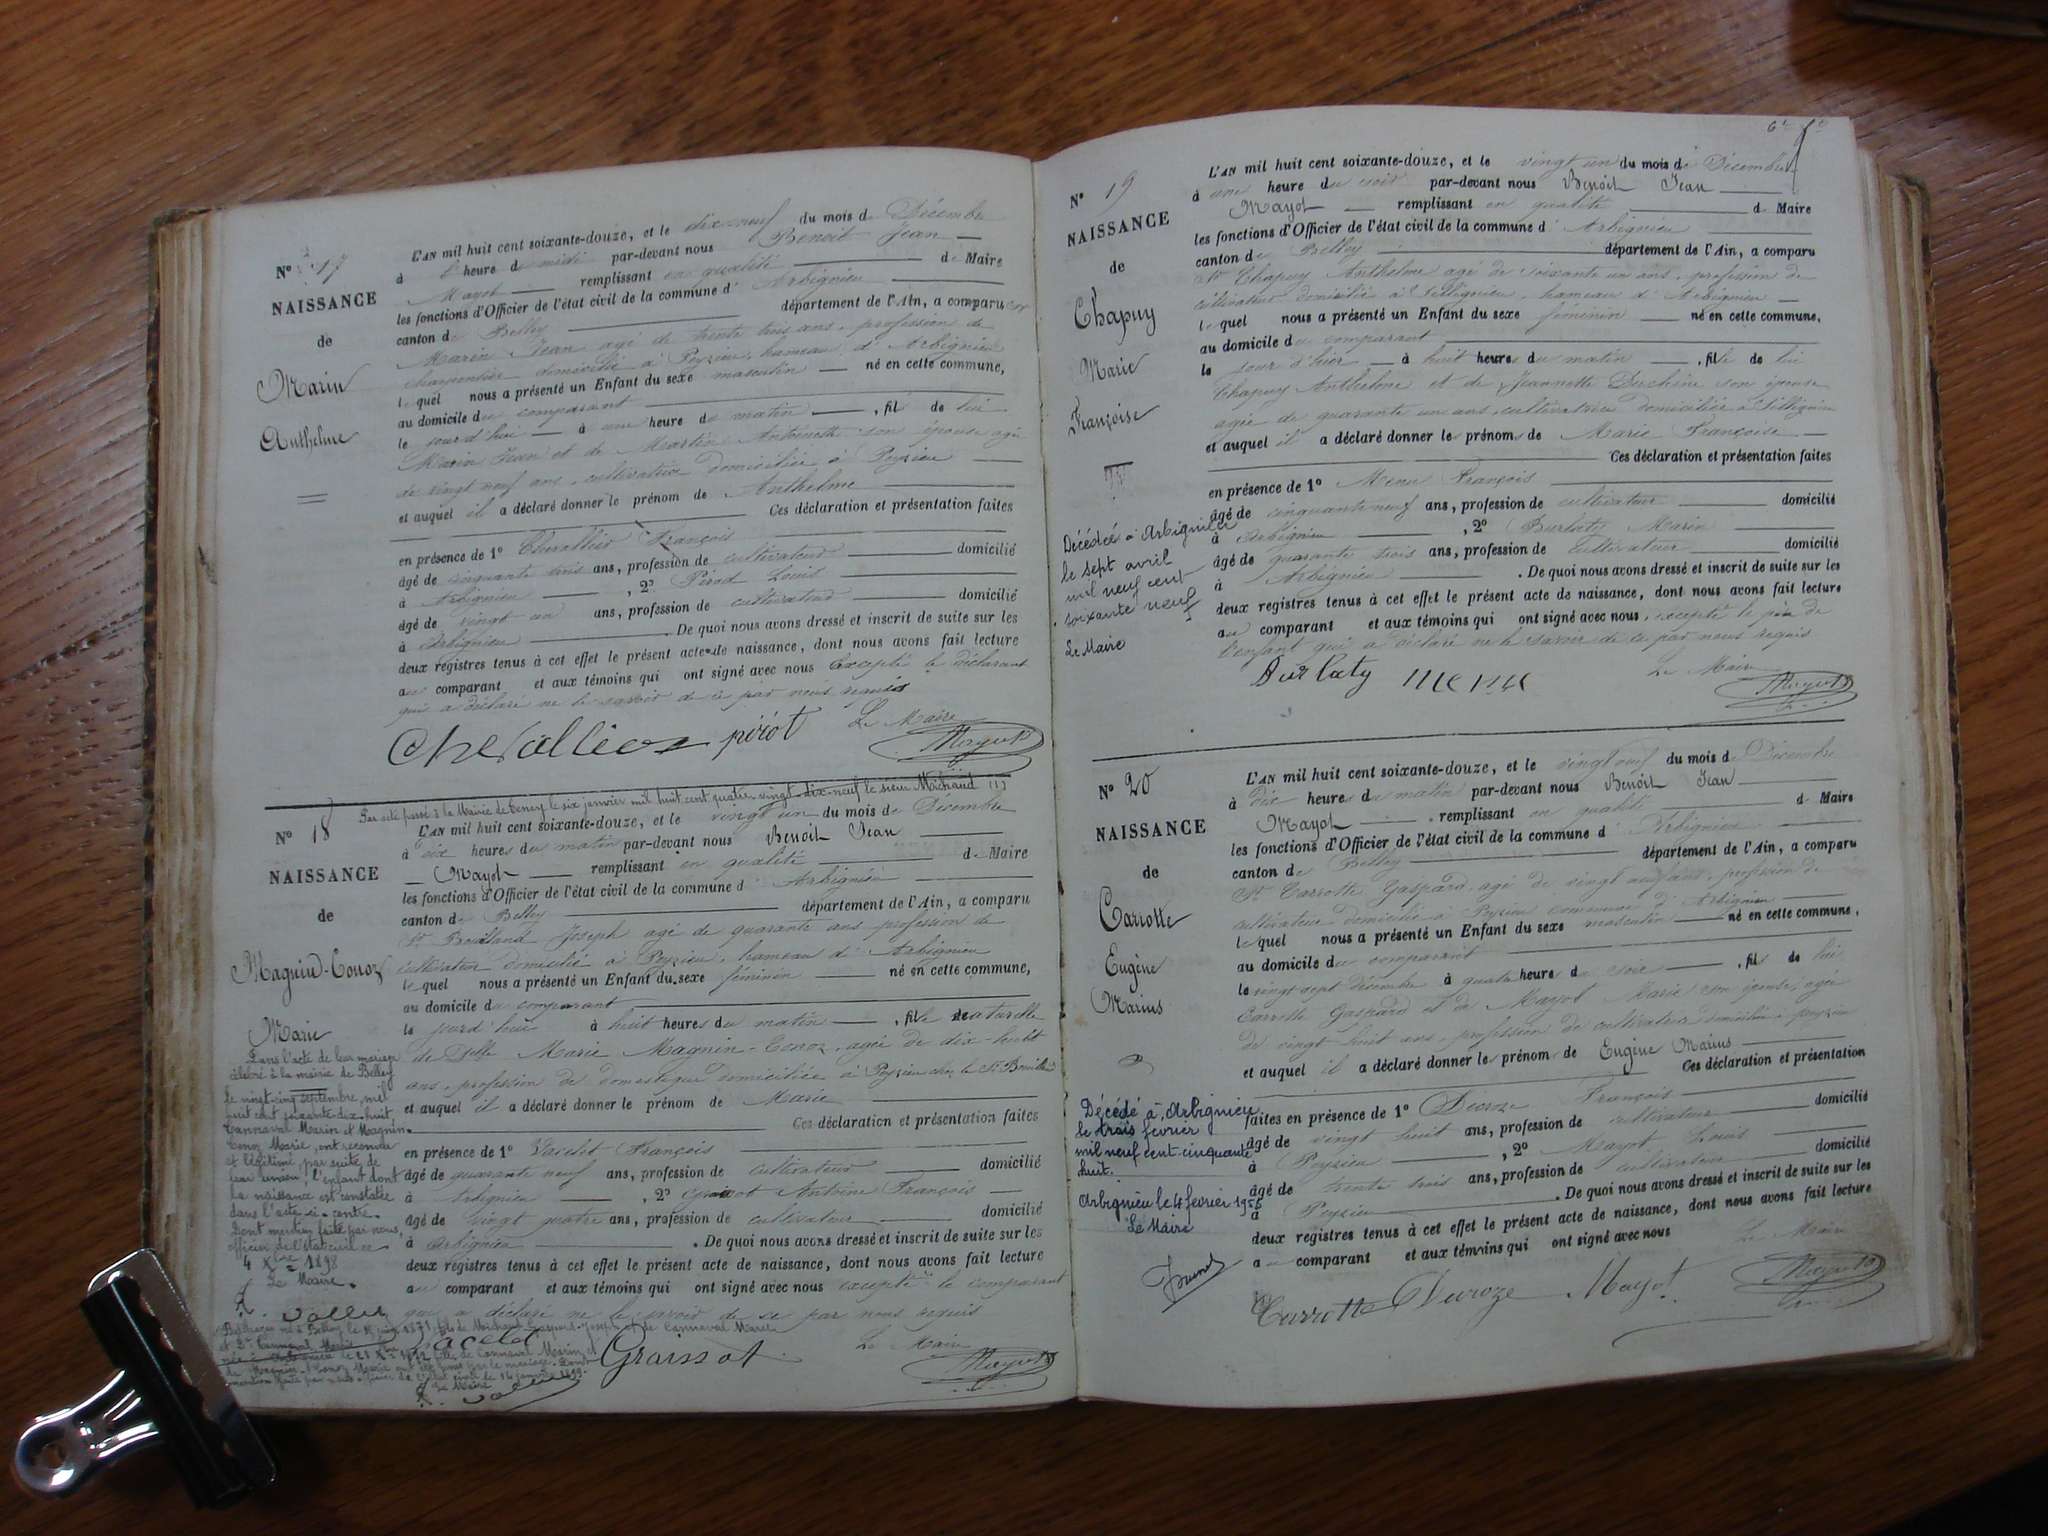 N° 17
NAISSANCE
de
Marin
Anthelme
L'AN mil huit cent soixante-douze, et le dix-neuf du mois de Décembre
à heure de midi par-devant nous Benoit Jean
Mayot remplissant en qualité de Maire
les fonctions d'Officier de l'état civil de la commune d' Arbignieu
canton de Belley département de l'Ain, a comparu
Marin Jean agé de trente trois ans, profession de
charpentier domicilié à Peyzieu, hameau d'Arbignieu
lequel nous a présenté un Enfant du sexe masculin né en cette commune,
au domicile du comparant
le jourd'hui à une heure du matin, fils de lui
Marin Jean et de Martin Antoinette son épouse agée
de vingt neuf ans, cultivatrice domiciliée à Peyzieu
et auquel il a déclaré donner le prénom de Anthelme
Ces déclaration et présentation faites
en présence de 1° Chevallier François
âgé de cinquante trois ans, profession de cultivateur domicilié
à Arbignieu, 2° Pirod Louis
âgé de vingt un ans, profession de cultivateur domicilié
à Arbignieu. De quoi nous avons dressé et inscrit de suite sur les
deux registres tenus à cet effet le présent acte de naissance, dont nous avons fait lecture
au comparant et aux témoins qui ont signé avec nous Excepté le déclarant
qui a déclaré ne le savoir de ce par nous requis
Chevallier pirot Le Maire
Mayot
Par acte passé à la Mairie de le six janvier mil huit cent quatre vingt-dix-neuf le sieur Michaud
N° 18
NAISSANCE
de
Magnin-Conoz
Marie
L'AN mil huit cent soixante-douze, et le vingt un du mois de Décembre
à dix heures du matin par-devant nous Benoit Jean
Mayot remplissant en qualité de Maire
les fonctions d'Officier de l'état civil de la commune d' Arbignieu
canton de Belley département de l'Ain, a comparu
Sr Bouilland Joseph agé de quarante ans profession de
cultivateur domicilié à Peyzieu, hameau d'Arbignieu
lequel nous a présenté un Enfant du sexe féminin né en cette commune,
au domicile du comparant
le jourd'hui à huit heures du matin, fille naturelle
de Delle Marie Magnin-Conoz, agée de dix-huit
ans, profession de domestique domiciliée à Peyzieu chez le Sr Bouilland
et auquel il a déclaré donner le prénom de Marie
Ces déclaration et présentation faites
en présence de 1° Vacelet François
âgé de quarante neuf ans, profession de cultivateur domicilié
à Arbignieu, 2° Antoine François
âgé de vingt quatre ans, profession de cultivateur domicilié
à Arbignieu. De quoi nous avons dressé et inscrit de suite sur les
deux registres tenus à cet effet le présent acte de naissance, dont nous avons fait lecture
au comparant et aux témoins qui ont signé avec nous excepté le comparant
qui a déclaré ne le savoir de ce par nous requis
Vacelet Graissot Le Maire
Mayot
Dans l'acte de leur mariage
célébré à la mairie de Belley
le vingt-cinq septembre, mil
huit cent soixante-dix-huit
Cannaval Marin et Magnin-
Conoz Marie, ont reconnu
et légitimé par suite de
leur union, l'enfant dont
la naissance est constatée
dans l'acte ci-contre.
Dont mention faite par nous,
officier de l'état civil ce
4 Xbre 1898
Le Maire.
né à Belley le 1871 fils de Michaud Joseph et de Cannaval Marie
et Dlle Cannaval Marie
née à Arbignieu le 21 Xbre 1872 fille de Cannaval Marin et
de Magnin-Conoz Marie ont été unis par le mariage. Dont
mention faite par nous officier de l'état civil le 14 janvier 1899.
Le Maire
N° 19
NAISSANCE
de
Chapuy
Marie
Françoise
L'AN mil huit cent soixante-douze, et le vingt un du mois de Décembre
à une heure du soir par-devant nous Benoit Jean
Mayot remplissant en qualité de Maire
les fonctions d'Officier de l'état civil de la commune d' Arbignieu
canton de Belley département de l'Ain, a comparu
Sr Chapuy Anthelme agé de soixante un ans, profession de
cultivateur domicilié à Sillignieu, hameau d'Arbignieu
lequel nous a présenté un Enfant du sexe féminin né en cette commune,
au domicile du comparant
le jour d'hier à huit heures du matin, fille de lui
Chapuy Anthelme et de Jeannette son épouse
agée de quarante un ans, cultivatrice domiciliée à Sillignieu
et auquel il a déclaré donner les prénoms de Marie Françoise
Ces déclaration et présentation faites
en présence de 1° François
âgé de cinquante neuf ans, profession de cultivateur domicilié
à Arbignieu, 2° Burlaty Marin
âgé de quarante trois ans, profession de cultivateur domicilié
à Arbignieu. De quoi nous avons dressé et inscrit de suite sur les
deux registres tenus à cet effet le présent acte de naissance, dont nous avons fait lecture
au comparant et aux témoins qui ont signé avec nous, excepté le père de
l'enfant qui a déclaré ne le savoir de ce par nous requis
Burlaty Le Maire
Mayot
Décédée à Arbignieu
le sept avril
mil neuf cent
soixante neuf
Le Maire
N° 20
NAISSANCE
de
Carrotte
Eugène
Marius
L'AN mil huit cent soixante-douze, et le vingt neuf du mois de Décembre
à dix heures du matin par-devant nous Benoit Jean
Mayot remplissant en qualité de Maire
les fonctions d'Officier de l'état civil de la commune d' Arbignieu
canton de Belley département de l'Ain, a comparu
Sr Carrotte Gaspard agé de vingt neuf ans, profession de
cultivateur domicilié à Peyzieu commune d'Arbignieu
lequel nous a présenté un Enfant du sexe masculin né en cette commune,
au domicile du comparant
le vingt sept décembre à quatre heures du soir, fils de lui
Carrotte Gaspard et de Mayot Marie son épouse, agée
de vingt huit ans, profession de cultivatrice domiciliée à peyzieu
et auquel il a déclaré donner les prénom de Eugène Marius
Ces déclaration et présentation
faites en présence de 1° Duroze François
âgé de vingt huit ans, profession de cultivateur domicilié
à Peyzieu, 2° Mayot Louis
âgé de trente trois ans, profession de cultivateur domicilié
à Peyzieu. De quoi nous avons dressé et inscrit de suite sur les
deux registres tenus à cet effet le présent acte de naissance, dont nous avons fait lecture
au comparant et aux témoins qui ont signé avec nous
Le Maire
Carrotte Duroze Mayot Mayot
Décédé à Arbignieu
le trois février
mil neuf cent cinquante
huit.
Arbignieu le 4 février
Le Maire